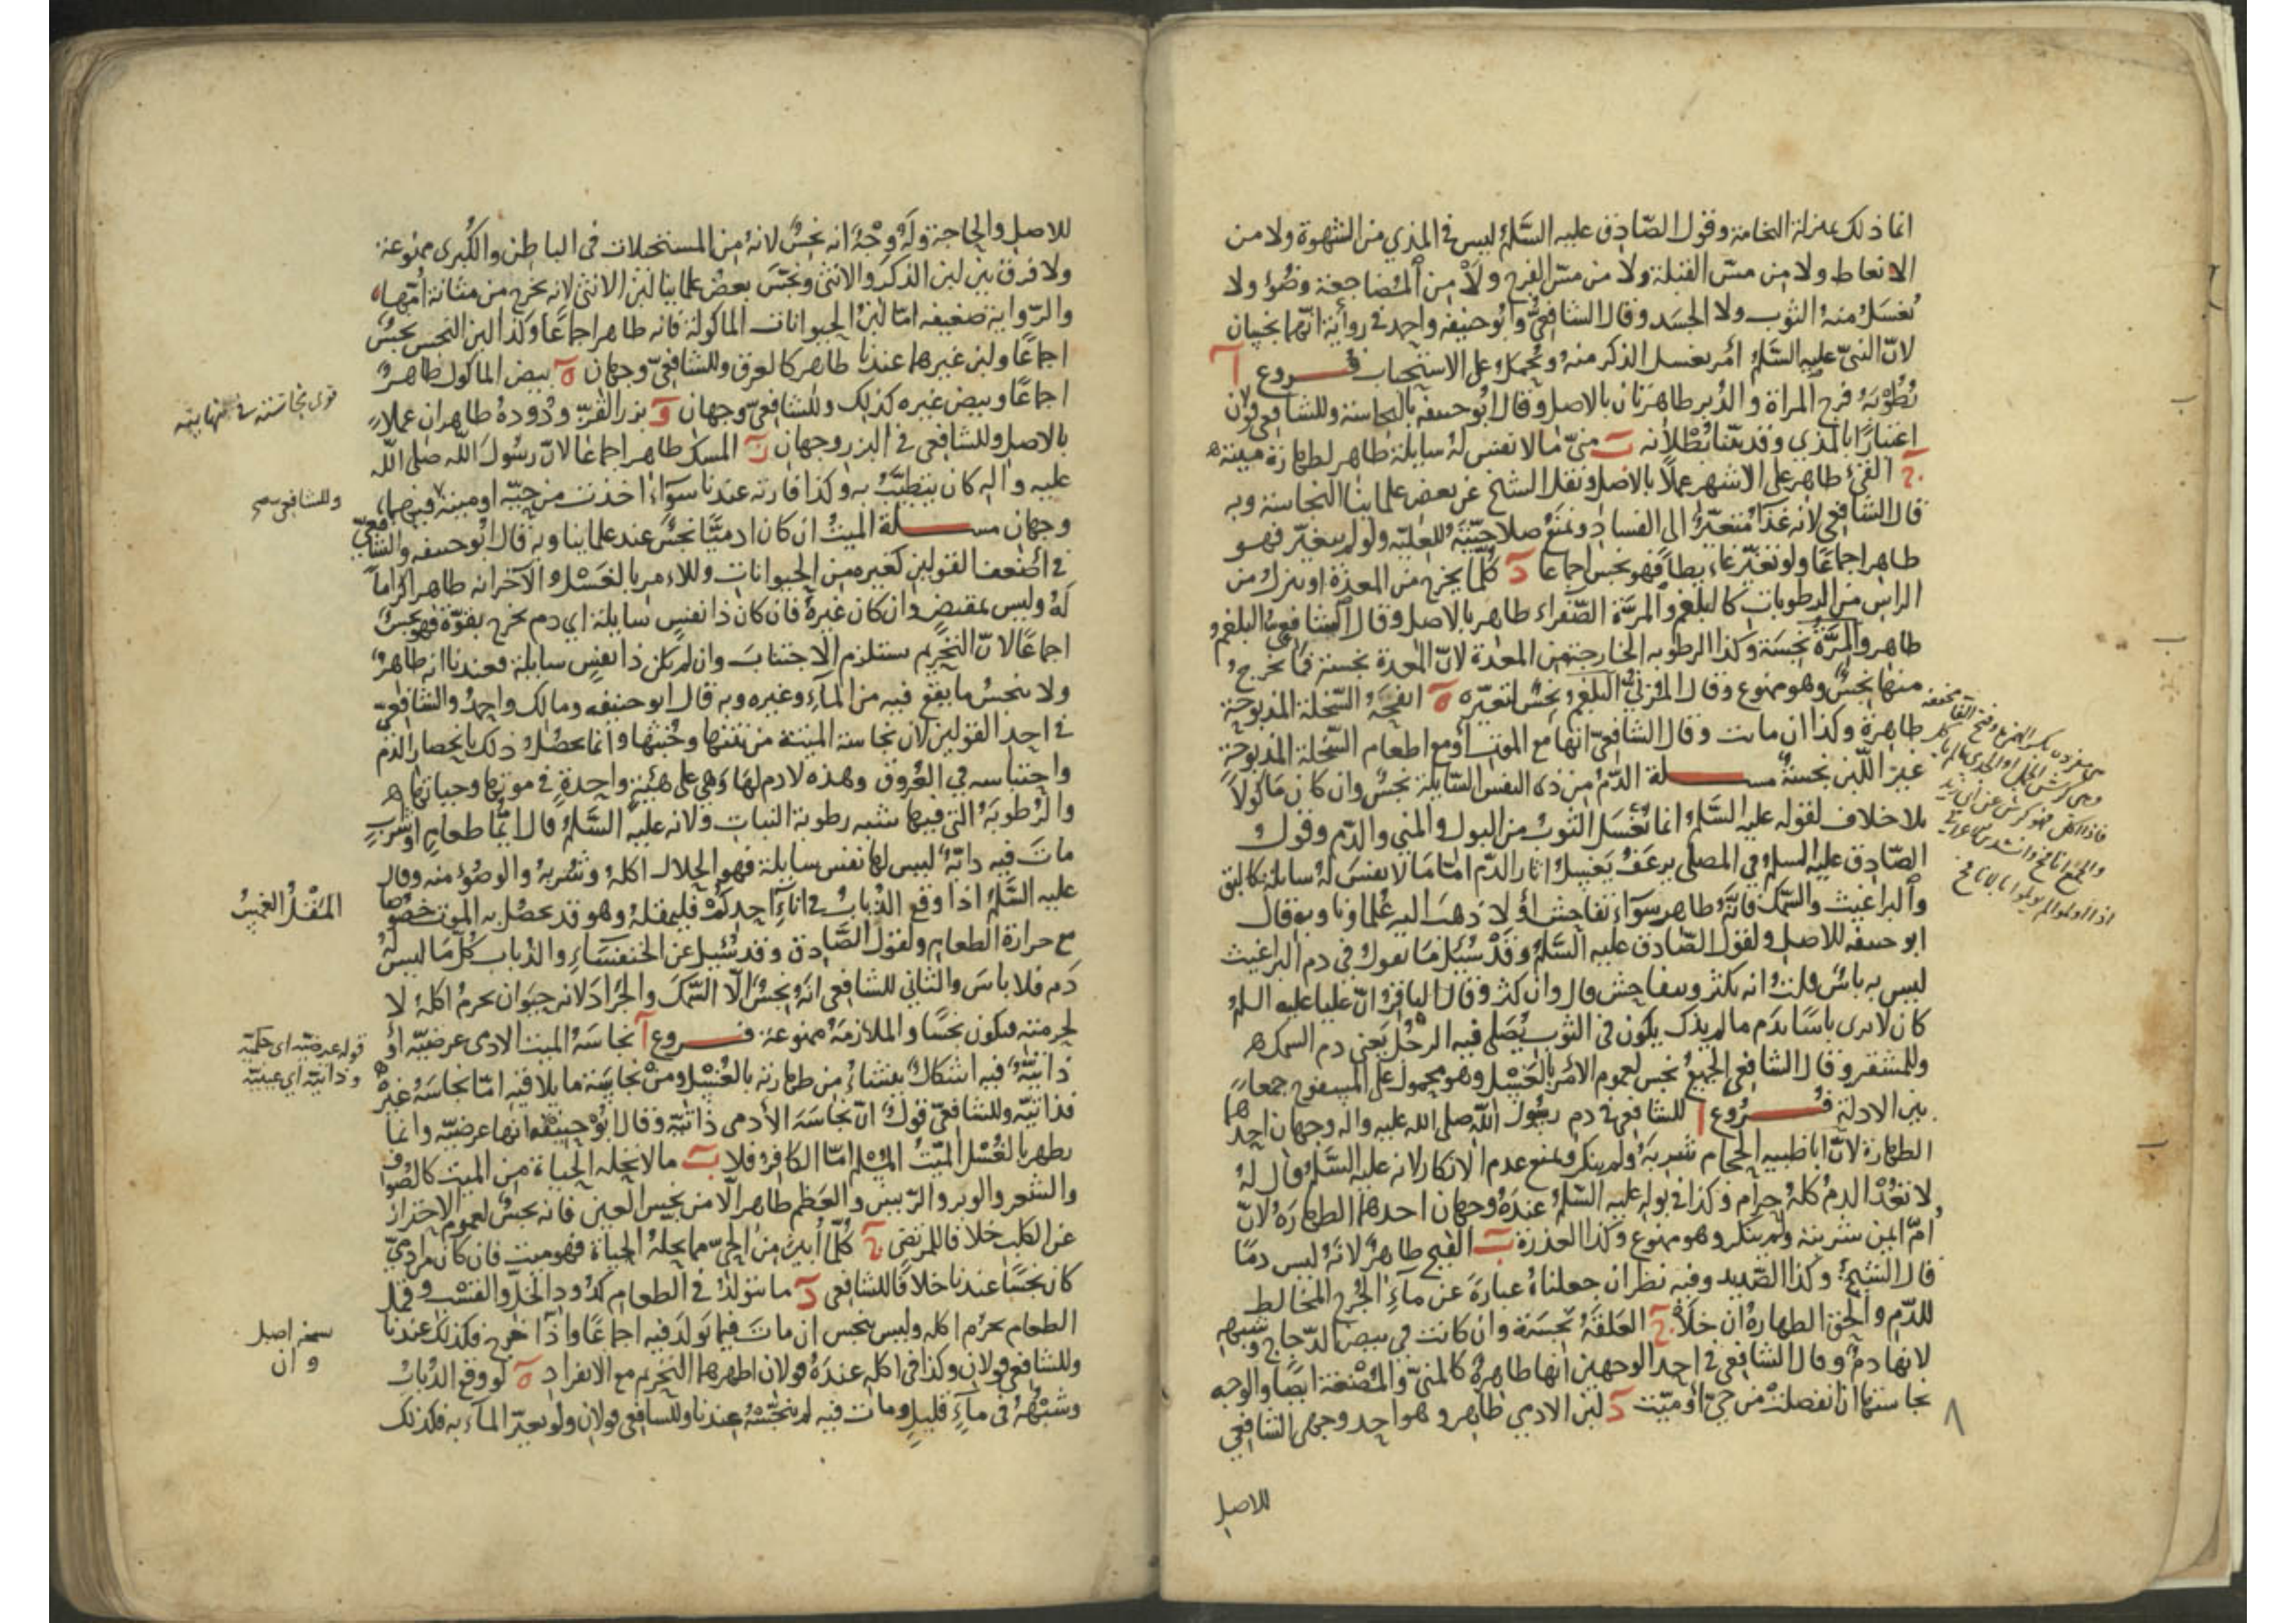 انما ذلك بمنزلة النخامة وقول الصّادق عليه السَّلمُ ليس في المذي من الشهوة ولا من
الانعاط ولا من مسّ القبلة ولا من مسّ الفرج ولا من المُضاجعة وضُوْ ولا
يُغسَلُ منهُ الثوب ولا الجسَد وقال الشافعيُّ وابُو حنيفه واحمد في روايَة انّهما نجسان
لانّ النبيّ عليه السَّلمُ أمر بغسل الذكر منهُ ويُحمَلُ على الاستحباب فُـــروع آ
رُطُوبَةُ فرج المراة والدُبر طاهرتان بالاصل وقال ابُو حنيفه بالنجاسة وللشافعي قولان
اعتبارًا بالمذي وقد بيّنا بُطْلانه بَ منيّ ما لا نفس لهُ سايلة طاهر لطهارة ميتته
جَ القيُ طاهر على الاشهر عملاً بالاصل ونقل الشيخ عن بعض علماينا النجاسة وبه
قال الشافعي لانه غذا مُتغيّرٌ الى الفساد ونمنَعُ صلاحيّتَهُ للعليّه ولو لم يتغيّر فهو
طاهر اجماعًا ولو تغيّر غايطا فهو نجس اجماعا دَ كُلّما يخرج من المعدة او ينزل من
الراس من الرطوبات كالبلغم والمِرّة الصّفراء طاهر بالاصل وقال الشافعي البلغم
طاهر والمِرَّةُ نجسَة وكذا الرطوبه الخارجة من المعدة لانّ المعدة نجسة فما يخرج
منها نجسٌ وهو ممنوع وقال المُزني في البلغم نجسٌ لتغيّره هَ انفحَةُ السّخلة المذبوحة
طاهرَة وكذا ان ماتت وقال الشافعيّ انها مع الموت او مع اطعام السّخلة المذبوحة
غير اللّبن نجسةٌ مســـلة الدّمُ من ذي النفس السّايلة نجسٌ وان كان مَاكولاً
بلا خلاف لقوله عليه السَّلمُ انما يُغسَل الثوبُ من البول والمني والدّم وقول
الصّادق عليه السلمُ في المصلي يرعَفُ يَغسِلُ اثار الدّم امّا ما لا نفسَ لهُ سايلة كالبق
والبراغيث والسّمك فانّهُ طاهر سوَاء تفاحش أو لا ذهبَ اليه عُلماونا وبه قال
ابو حنيفه للاصل ولقول الصّادق عليه السَّلمُ وقَدْ سُئِلَ ما تقول في دم البراغيث
ليس به باسٌ قلتُ انه يكثر ويتفاحش قال وان كثر وقال الباقرُ انّ عليا عليه السلمُ
كان لا يرى باسًا بدَم ما لم يذك يكون في الثوب يُصَلي فيه الرجُلُ يَعني دم السمك
وللمشقة وقال الشافعي الجميعُ نجس لعموم الامر بالغَسْل وهو محمول على المسفوح جمعًا
بين الادلة فُـــرُوع آ للشافعي في دم رسُول اللّه صلى الله عليه واله وجهان احدهما
الطهارة لانّ ابا طيبه الحجام شربَهُ ولم ينكر ونمنع عدم الانكار لانه عليه السَّلمُ قال لهُ
لا تعُدْ الدمُ كلهُ حرام وكذا في بوله عليه السّلمُ عندَهُ وجهان احدهما الطهارَة لانّ
اُمّ ايمن شربته ولم ينكر وهو ممنوع وكذا العذرة بَ القيح طاهرٌ لانّهُ ليس دمًا
قال الشيخُ وكذا الصّديد وفيه نظر ان جعلناهُ عبارَة عن ماء الجُرح المخالط
للدّم والحق الطهارةُ ان خلا جَ العَلقَةُ نجسَة وان كانت في بيض الدّجاج وشبهه
لانها دمٌ وقال الشافعي في احد الوجهين انها طاهرة كالمنيّ والمُضغة ايضًا والوجه
نجاستها ان انفصلت من حيّ أو ميّت دَ لبن الادمي طاهر وهو احد وجهي الشافعي
للاصل
٨
للاصل والحاجة ولَهُ وجْهٌ انه نجسٌ لانهُ من المستحيلات في الباطن والكُبرى ممنوعة
ولا فرق بين لبن الذكر والانثى ونجّسَ بعضُ علماينا لبن الانثى لانه يخرج من مثانة اُمّها
والرّواية ضعيفه امّا لبنُ الحيوانات الماكولة فانه طاهر اجماعًا وكذا لبن النجس نجسٌ
اجماعًا ولبن غيرها عندنا طاهر كالعرق وللشافعيّ وجهان هَ بيض الماكول طاهرٌ
اجماعًا وبيض غيره كذلك وللشافعيّ وجهان وَ بزر القزّ ودُودهُ طاهران عملاً
بالاصل وللشافعي في البزر وجهان زَ المسك طاهر اجماعا لانّ رسُول اللّه صلى اللّه
عليه واله كان يتطيّبُ به وكذا فارته عندنا سوَاءً اخذت من حيّه او ميتة وفيهما
وجهان مســـلة الميتُ ان كان ادميًّا نجُسَ عند علماينا وبه قال ابُو حنيفه والشافعيّ
في اضعف القولين كغيره من الحيوانات وللامر بالغَسْل والآخر انه طاهر اكرامًا
لَهُ وليس بمقتضٍ وان كان غيرَهُ فان كان ذا نفسٍ سايلة اي دم يخرج بقوّة فهو نجسٌ
اجماعًا لانّ التحريم يستلزم الاجتنابَ وان لم يكن ذا نفسٍ سايلة فعندنا انه طاهرٌ
ولا ينجسُ ما يقع فيه من الماء وغيره وبه قال ابو حنيفه ومالك واحمد والشافعيّ
في احد القولين لان نجاسة الميتة من نتنها وخُبثها وانما يحصُلُ ذلك بانحصار الدّم
واحتباسه في العُروق وهذه لا دم لهَا وَهي على هَيئَة واحدةٍ في موتها وحياتها
والرُطوبَةُ التي فيها شبه رطوبة النبات ولانه عليه السَّلمُ قال ايُّما طعامٍ او شربٍ
ماتَ فيه دابّةٌ ليس لها نفس سايلة فهو الحلال اكلهُ وشُربهُ والوضُوْ منه وقال
عليه السَّلمُ اذا وقع الذُبابُ في اناءِ احدكُمْ فليمقلهُ وهو قد يحصُل به الموت خصُوصا
مع حرارة الطعام ولقول الصَّادق وقد سُئِلَ عن الخنفسَاءِ والذُباب كُلّ ما ليس لهُ
دَم فلا باسَ والثاني للشافعي انّهُ نجسٌ الّا السّمكَ والجَرادَ لانه حيَوان يحرمُ اكلهُ لا
لحرمته فيكون نجسًا والملازمَةُ ممنوعة فـــروع آ نجاسَةُ الميت الادمي عرضيّه أو
ذاتيّةٌ فيه اشكالٌ ينشاءُ من طهارته بالغُسْل ومنْ نجاسَة ما يلاقيه امّا نجاسَةُ غيره
فذاتيّه وللشافعيّ قولٌ انّ نجاسَةَ الأدمي ذاتيّة وقال ابُو حنيفه انها عرضيّه وانما
يطهر بالغُسْل الميّتُ المُسلم امّا الكافرُ فلا بَ ما لا تحلّه الحياة من الميت كالصُوف
والشعر والوبر والرّيش والعَظم طاهر الّا من نجس العين فانه نجسٌ لعموم الاحتراز
عن الكلب خلافا للمرتضى جَ كُلّما اُبينَ من الحيّ مما يحلهُ الحياة فهو ميت فان كان من ادميّ
كان نجسًا عندنا خلافًا للشافعي دَ ما يتولّدُ في الطعام كدُود الخلّ والفستق وقمل
الطعام يحرُم اكله وليس بنجس ان ماتَ فيما تولّدَ فيه اجماعًا واذا اخرج فكذلك عندنا
وللشافعي قولان وكذا في اكله عندَهُ قولان اظهرهما التحريم مع الانفراد هَ لو وقع الذُبابُ
وشبْهُهُ في ماءٍ قليلٍ ومات فيه لم ينجّسْهُ عندنا وللشافعي قولان ولو تغيّر الماء به فكذلك
قوى نجاسته في نهايته
وللشافعي صح
المَقْلُ الغمسُ
قوله عرضيّه اى حكميّه
وذاتيّه اي عينيّه
نسخه اصل
وان